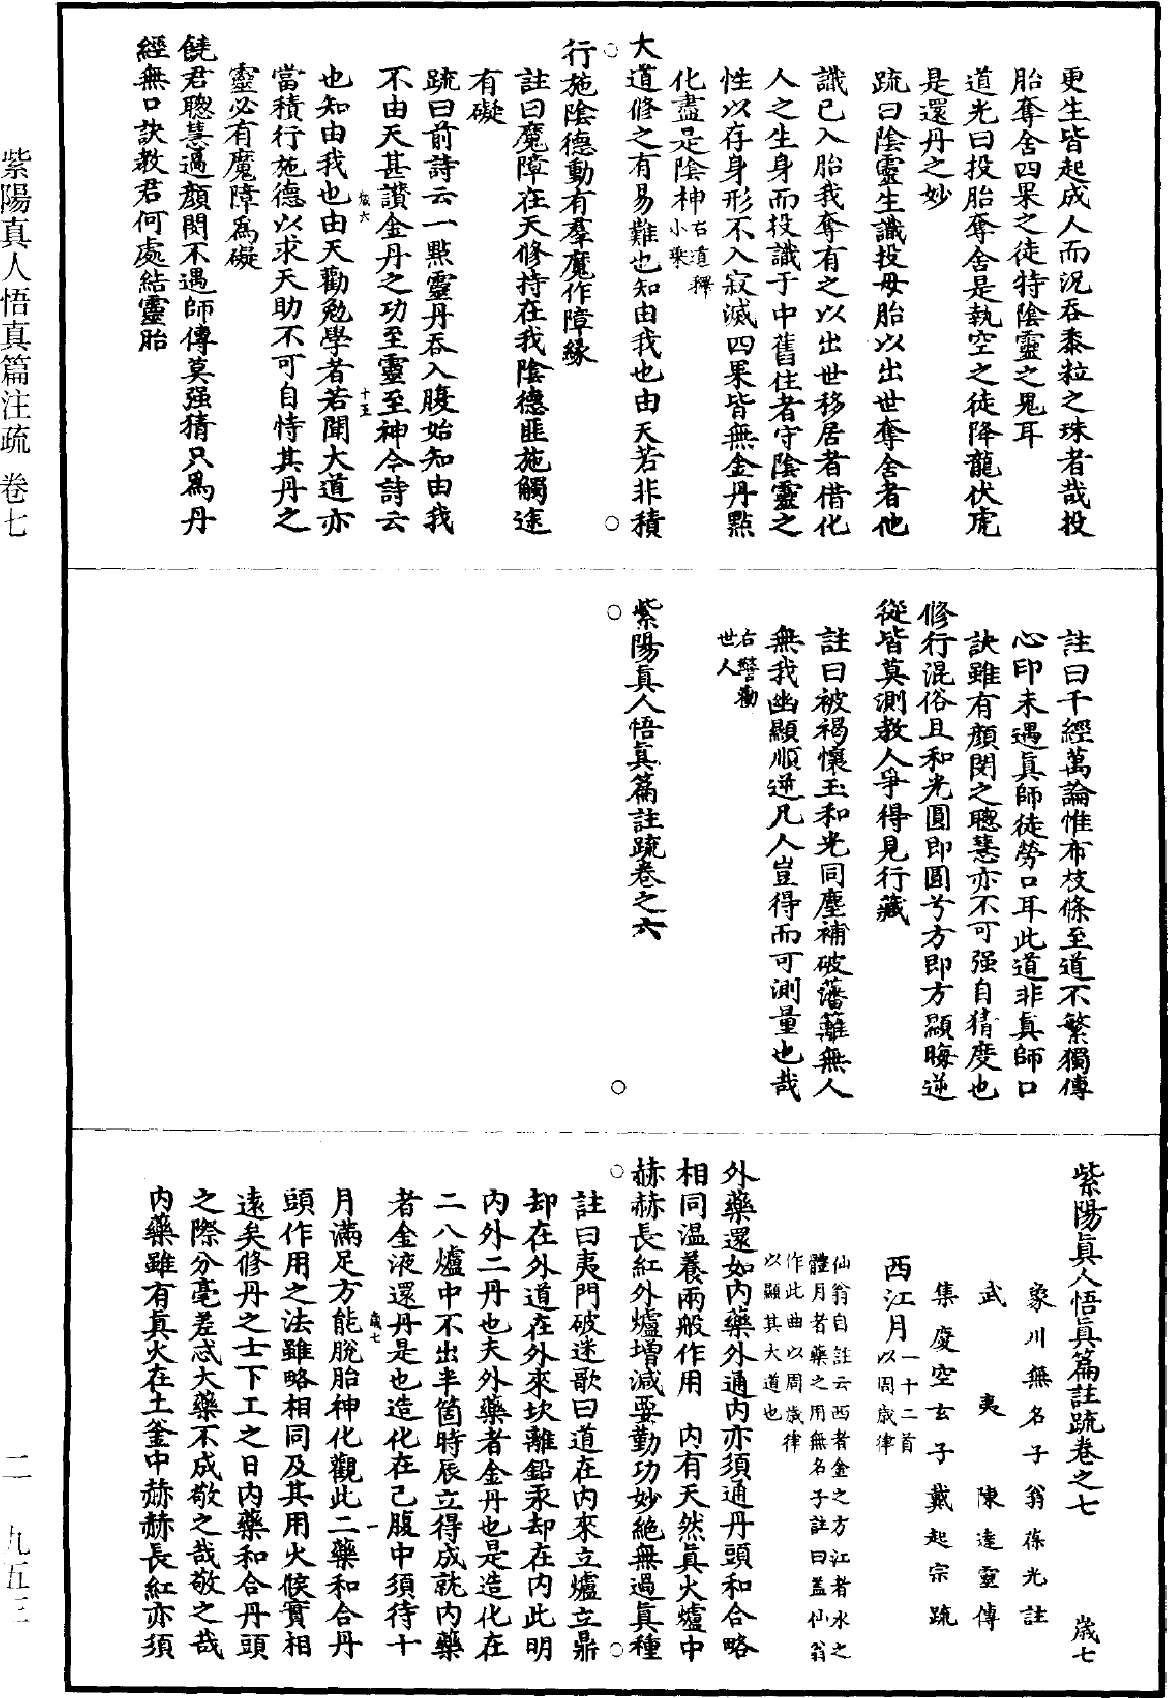 更生皆起成人而況吞黍粒之珠者哉投
胎奪舍四果之徒特陰靈之鬼耳
道光曰投胎奪舍是執空之徒降龍伏虎
是還丹之妙
疏曰陰靈生識投母胎以出世奪舍者他
識已入胎我奪有之以出世移居者借化
人之生身而投識于中舊住者守陰靈之
性以存身形不入寂滅四果皆無金丹點
化盡是陰神右道釋
小乘
大道修之有易難也知由我也由天若非積
行施陰德動有羣魔作障緣
註曰魔障在天修持在我陰德匪施觸途
有礙
疏曰前詩云一點靈丹吞入腹始知由我
不由天甚讚金丹之功至靈至神今詩云
歲六
十五
也知由我也由天勸勉學者若聞大道亦
當積行施德以求天助不可自恃其丹之
靈必有魔障爲礙
饒君聰慧過顏閔不遇師傳莫强猜只爲丹
經無口訣教君何處結靈胎
註曰千經萬論惟布枝條至道不繁獨傳
心印未遇眞師徒勞口耳此道非眞師口
訣雖有顏閔之聰慧亦不可强自猜度也
修行混俗且和光圓即圓兮方即方顯晦逆
從皆莫測教人爭得見行藏
註曰被褐懷玉和光同塵補破藩籬無人
無我幽顯順逆凡人豈得而可測量也哉
右警勸
世人
紫陽眞人悟眞篇註疏卷之六
紫陽眞人悟眞篇註疏卷之七 歲七
象川無名子翁葆光註
武夷陳達靈傳
集慶空玄子戴起宗疏
西江月一十二首
以周歲律
仙翁自註云西者金之方江者水之
體月者藥之用無名子註曰蓋仙翁
作此曲以周歲律
以顯其大道也
外藥還如内藥外通内亦須通丹頭和合略
相同温養兩般作用 内有天然眞火爐中
赫赫長紅外爐增減要勤功妙絶無過眞種
註曰夷門破迷歌曰道在内來立爐立鼎
却在外道在外來坎離鉛汞却在内此明
内外二丹也夫外藥者金丹也是造化在
二八爐中不出半箇時辰立得成就内藥
者金液還丹是也造化在己腹中須待十
歲七
一
月滿足方能脫胎神化觀此二藥和合丹
頭作用之法雖略相同及其用火候實相
遠矣修丹之士下工之日内藥和合丹頭
之際分毫差忒大藥不成敬之哉敬之哉
内藥雖有眞火在土釜中赫赫長紅亦須
紫陽真人悟真篇注疏 卷七
二—九五三